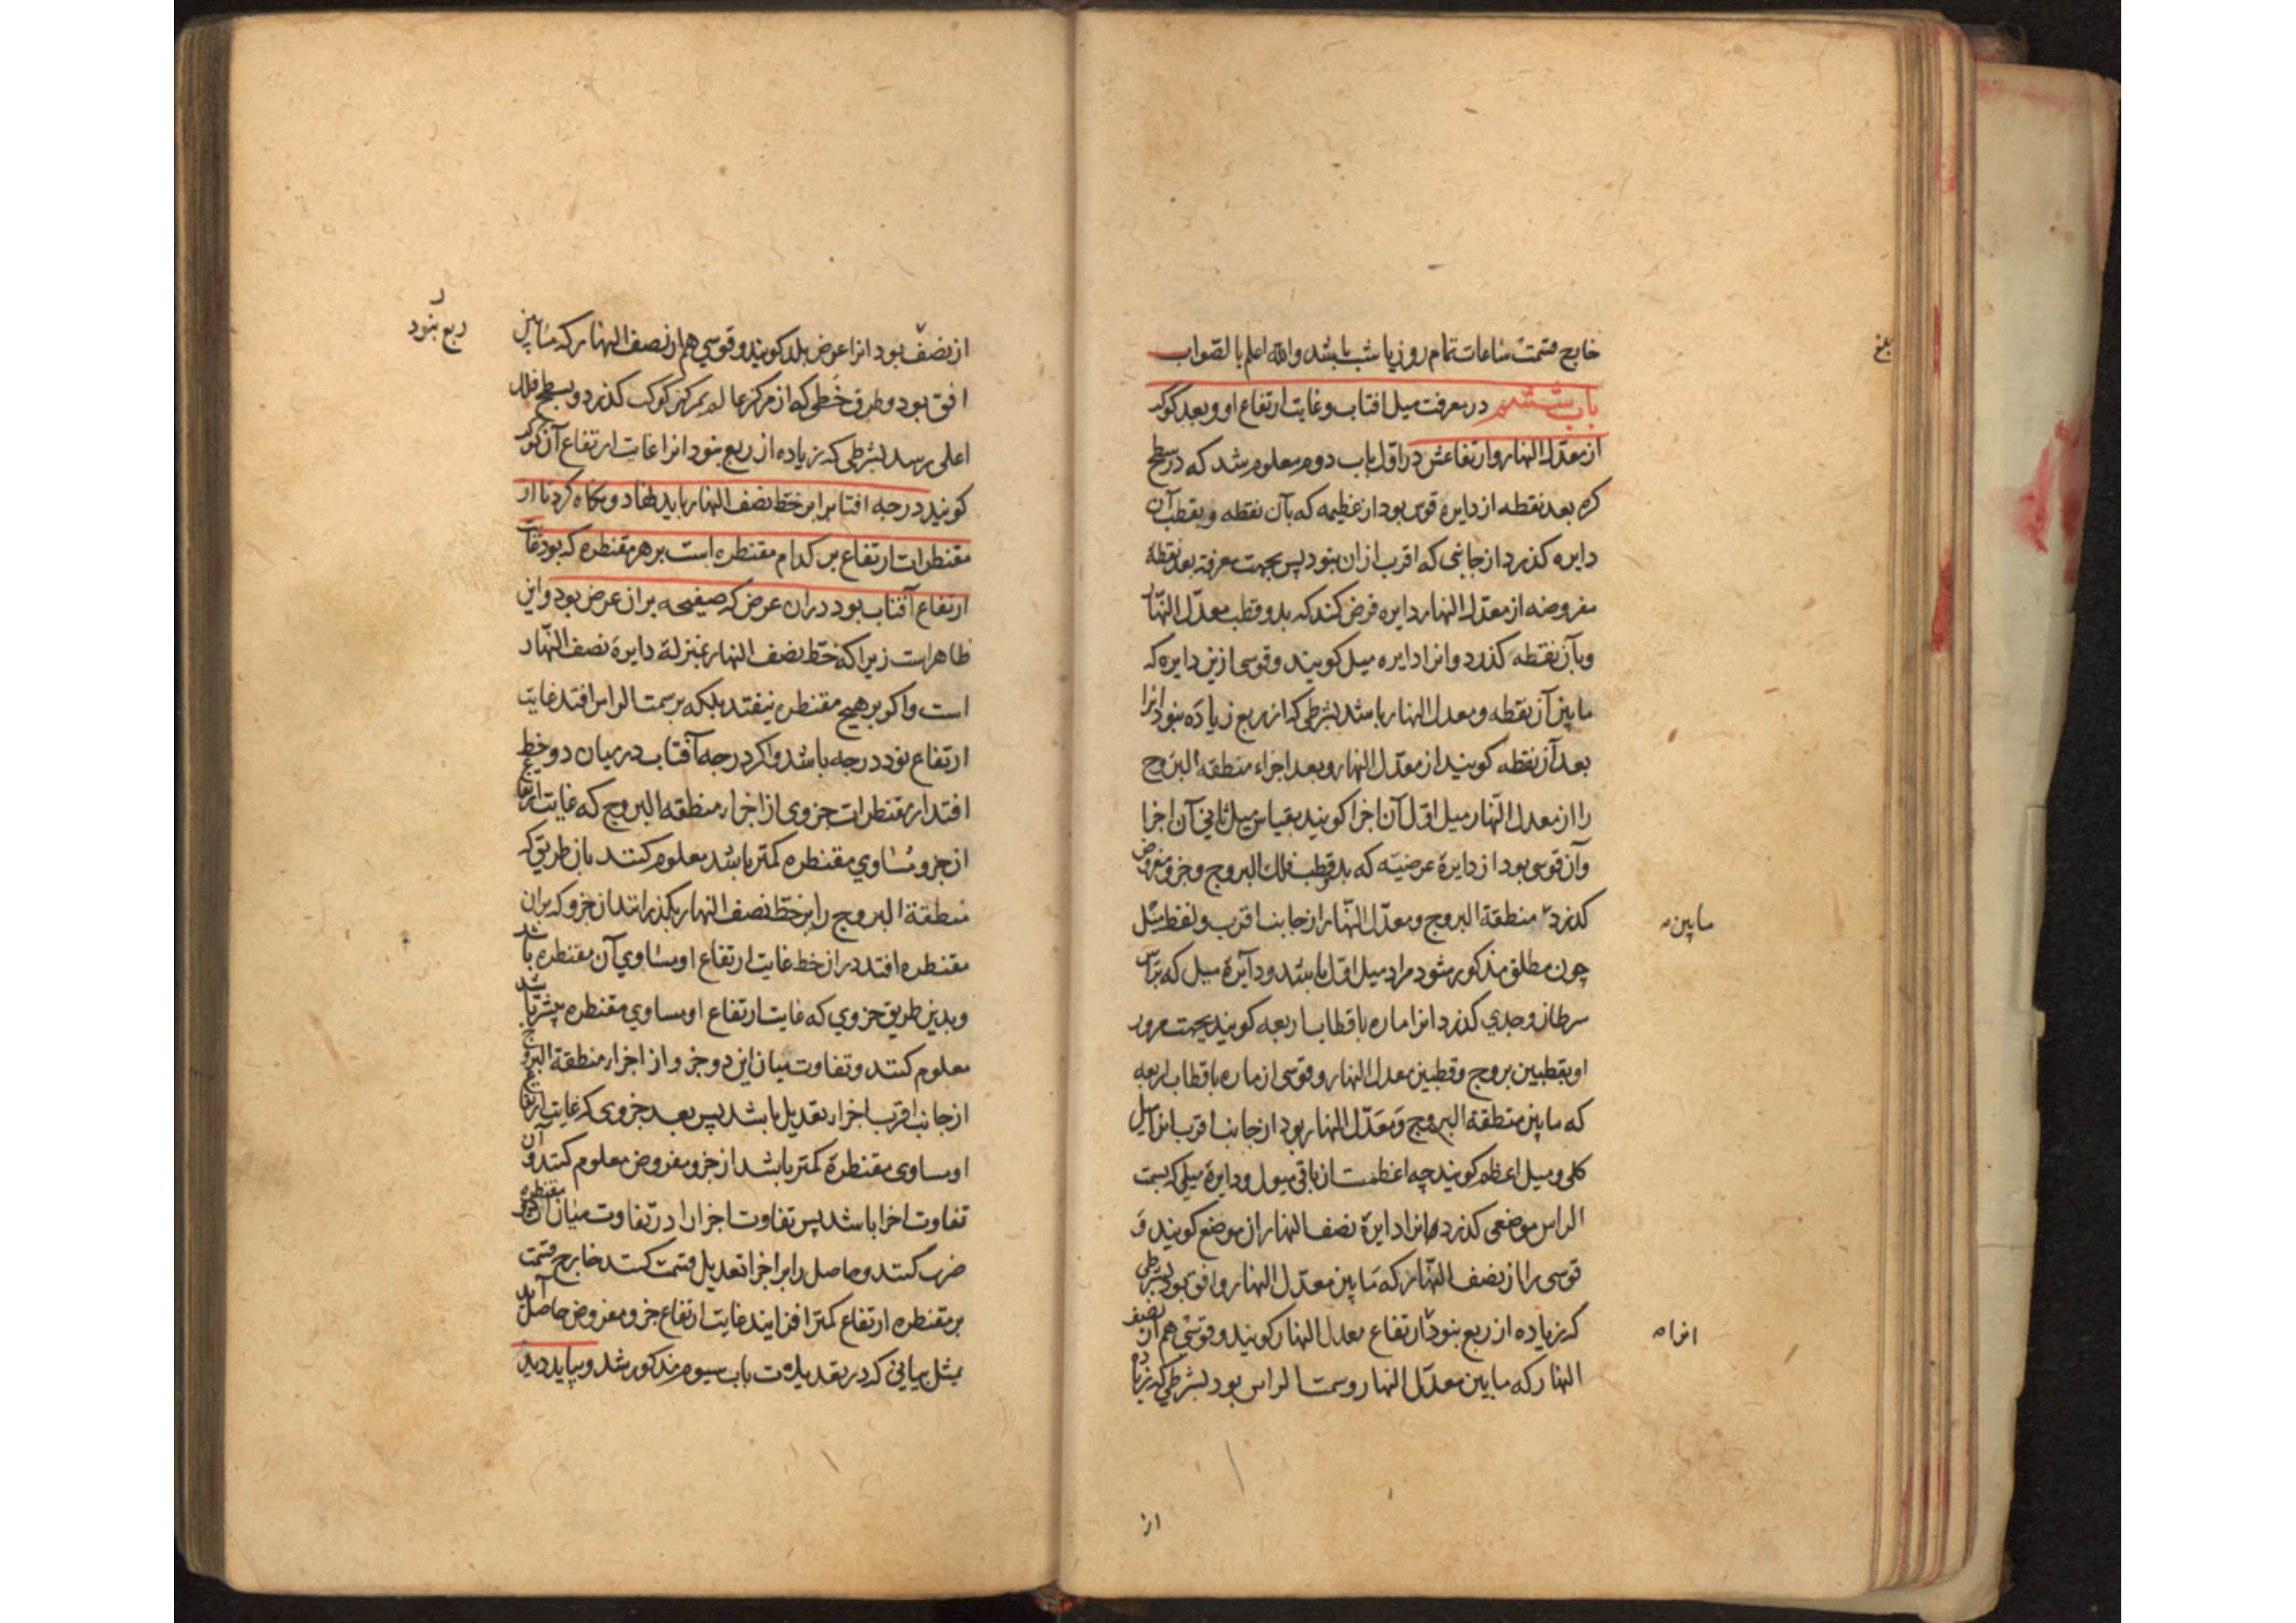 خارج قسمت ساعات تمام روز یا شب باشد والله اعلم بالصواب
بلغ
باب ششم در معرفت میل افتاب و غایت ارتفاع او و بعد کوکب
از معدّل النهار و ارتفاعش در اول باب دوم معلوم شد که در سطح
کره بعد نقطه از دایره قوس بود از عظیمه که بآن نقطه و بقطب آن
دایره کذرد از جانبی که اقرب ازان نبود پس بجهت معرفة بعد نقطه
مفروضه از معدّل النهار دایره فرض کنند که بدو قطب معدّل النّهار
و بآن نقطه کذرد و انرا دایره میل کویند و قوسی ازین دایره که
مابین آن نقطه و معدل النهار باشد بشرطی که از ربع زیاده نبود انرا
بعد آن نقطه کویند از معدّل النهار و بعد اجزاء منطقه البروج
را از معدل النّهار میل اول آن اجزا کویند بقیاس میل ثانی آن اجزا
و آن قوسی بود از دایرهٔ عرضیّه که بدو قطب فلک البروج و جزو مفروض
کذرد منطقة البروج و معدّل النّهار از جانب اقرب و لفظ میل
مابین
چون مطلق مذکور شود مراد میل اول باشد و دایرهٔ میل که براس
سرطان و جدی کذرد انرا ماره باقطاب اربعه کویند بجهت مرور
او بقطبین بروج و قطبین معدل النهار و قوسی از ماره باقطاب اربعه
که مابین منطقة البروج و معدّل النهار بود از جانب اقرب انرا میل
کلی و میل اعظم کویند چه اعظمست از باقی میول و دایرهٔ میلی که بسمت
الراس موضعی کذرد انرا دایرهٔ نصف النهار ان موضع کویند و
قوسی را از نصف النّهار که مابین معدّل النهار و افق بود بشرطی
که زیاده از ربع نبود ارتفاع معدل النهار کویند و قوسی هم از نصف
انرا
النهار که مابین معدّل النهار و سمت الراس بود بشرطی که زیاده
از
از نصف بود انرا عرض بلد کویند و قوسی هم از نصف النهار که مابین
ربع نبود
افق بود و طرف خطی که از مرکز عالم بمرکز کوکب کذرد و بسطح فلک
اعلی رسد بشرطی که زیاده از ربع نبود انرا غایت ارتفاع آن کوکب
کویند درجه افتاب را بر خط نصف النهار باید نهاد و نکاه کرد تا از
مقنطرات ارتفاع بر کدام مقنطره است بر هر مقنطره که بود غایت
ارتفاع آفتاب بود دران عرض که صفیحه بران عرض بود و این
ظاهر است زیرا که خط نصف النهار بمنزلهٔ دایرهٔ نصف النّهار
است و اکر بر هیچ مقنطره نیفتد بلکه بر سمت الراس افتد غایت
ارتفاع نود درجه باشد و اکر درجه آفتاب در میان دو خط
افتد از مقنطرات جزوی از اجزاء منطقه البروج که غایت ارتفاع
از جزو مساوی مقنطره کمتر باشد معلوم کنند بان طریق که
منطقة البروج را بر خط نصف النهار بکذرانند ان جزو که بران
مقنطره افتد در ان خط غایت ارتفاع او مساوی آن مقنطره باشد
و بدین طریق جزوی که غایت ارتفاع او مساوی مقنطره بیشتر باشد
معلوم کنند و تفاوت میان این دو جزو از اجزاء منطقة البروج
از جانب اقرب اجزاء تعدیل باشد پس بعد جزوی که غایت ارتفاع
او مساوی مقنطرهٔ کمتر باشد از جزو مفروض معلوم کنند و آن
تفاوت اجزا باشد پس تفاوت اجزا را در تفاوت میان دو مقنطره
ضرب کنند و حاصل را بر اجزا تعدیل قسمت کنند خارج قسمت
بر مقنطره ارتفاع کمتر افزایند غایت ارتفاع جزو مفروض حاصل آید
بمثل بیانی که در تعدیلات باب سیوم مذکور شد و بباید دید